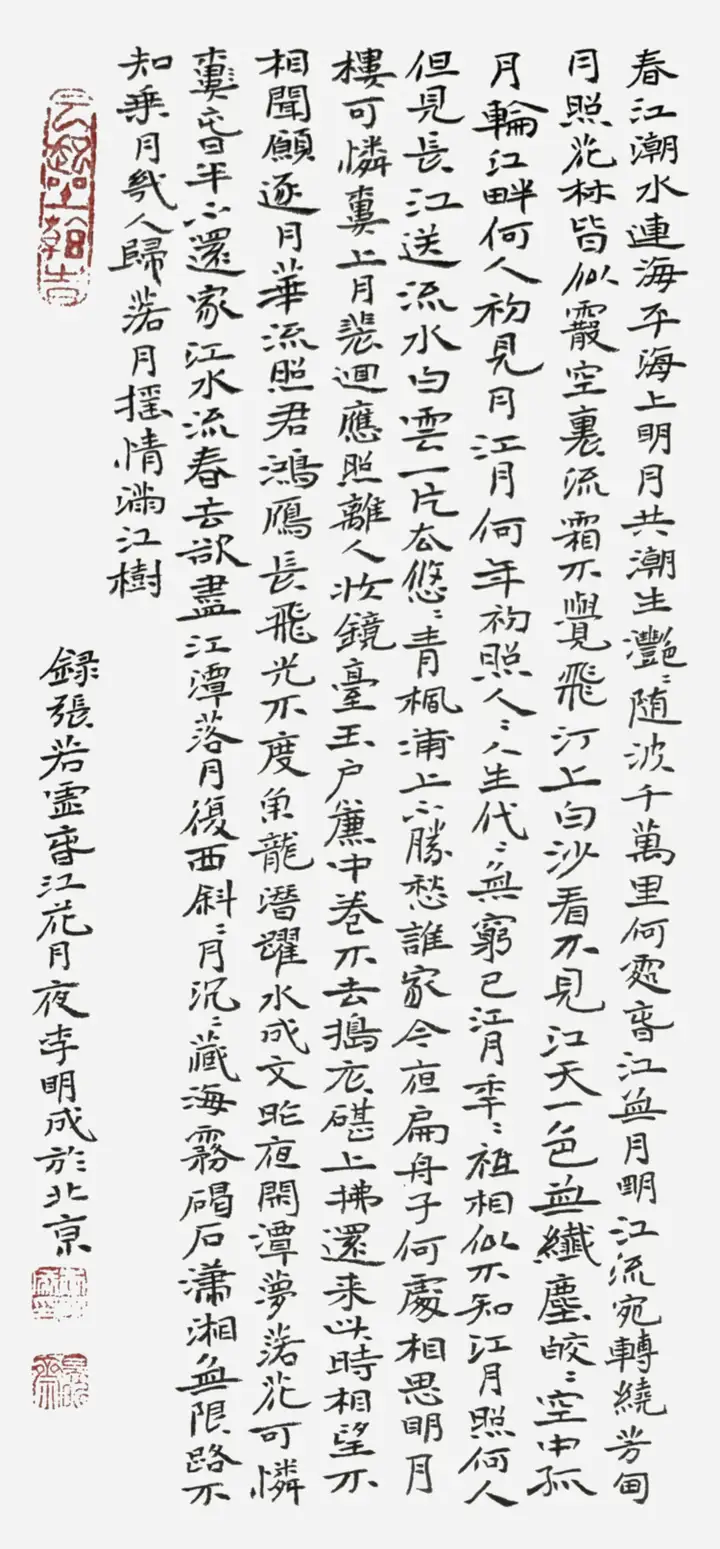 春江潮水連海平海上明月共潮生灧〻随波千萬里何處春江無月明江流宛轉繞芳甸
月照花林皆似霰空裏流霜不覺飛汀上白沙看不見江天一色無纖塵皎〻空中孤
月輪江畔何人初見月江月何年初照人〻生代〻無窮已江月年〻祗相似不知江月照何人
但見長江送流水白雲一片去悠〻青楓浦上不勝愁誰家今夜扁舟子何處相思明月
樓可憐樓上月裴回應照離人妝鏡臺玉户簾中卷不去搗衣砧上拂還来此時相望不
相聞願逐月華流照君鴻雁長飛光不度魚龍潛躍水成文昨夜閑潭夢落花可憐
春半不還家江水流春去欲盡江潭落月復西斜〻月沉〻藏海霧碣石瀟湘無限路不
知乗月幾人歸落月摇情滿江樹
録張若虚春江花月夜李明成於北京